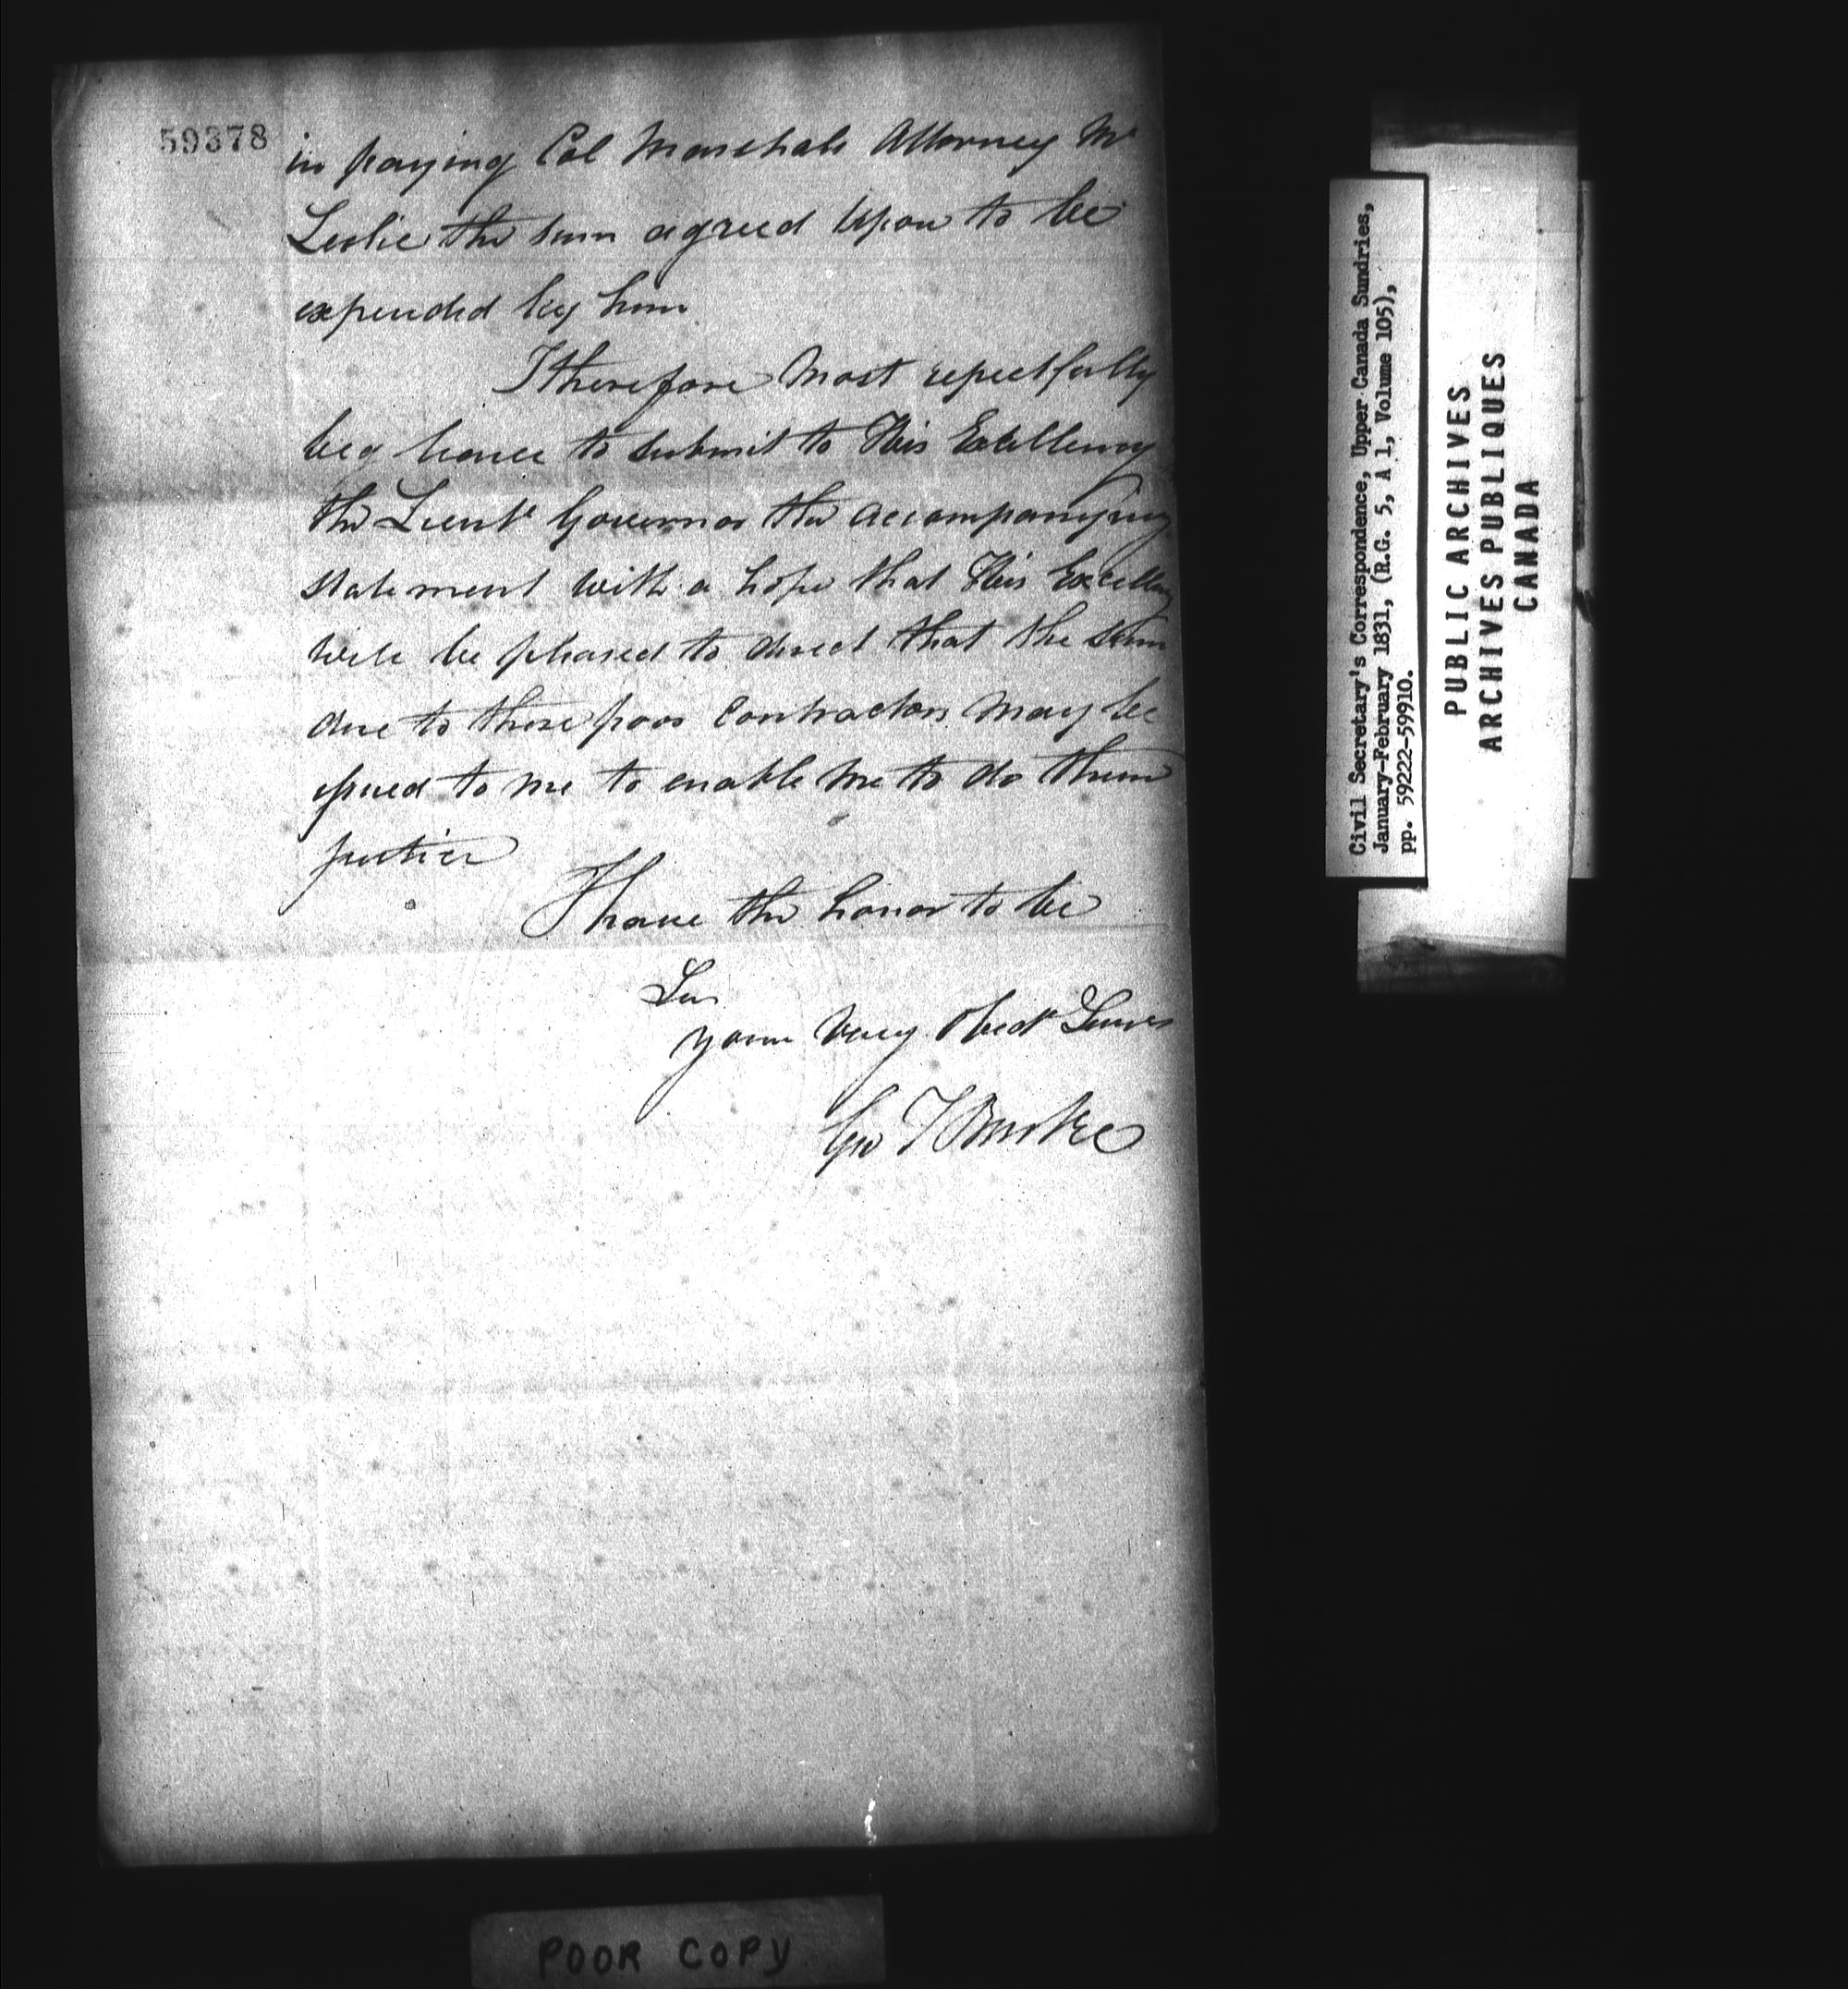 59378
in paying Col Marshals Attorney Mr
Leslie the sum agreed Upon to be
expended by him
I therefore Most repectfully
beg leave to submit to His Excellency
the Lieut Governor the accompanying
statement with a hope that His Excellency
will be pleased to direct that the sum
due to these poor Contractors May be
issued to me to enable Me to do them
justice
I have the honor to be
Sir
Your Very Obedt Servt
Geo T Burke
POOR COPY
Civil Secretary's Correspondence, Upper Canada Sundries,
January-February 1831, (R.G. 5, A 1, Volume 105),
pp. 59222-59910.
PUBLIC ARCHIVES
ARCHIVES PUBLIQUES
CANADA